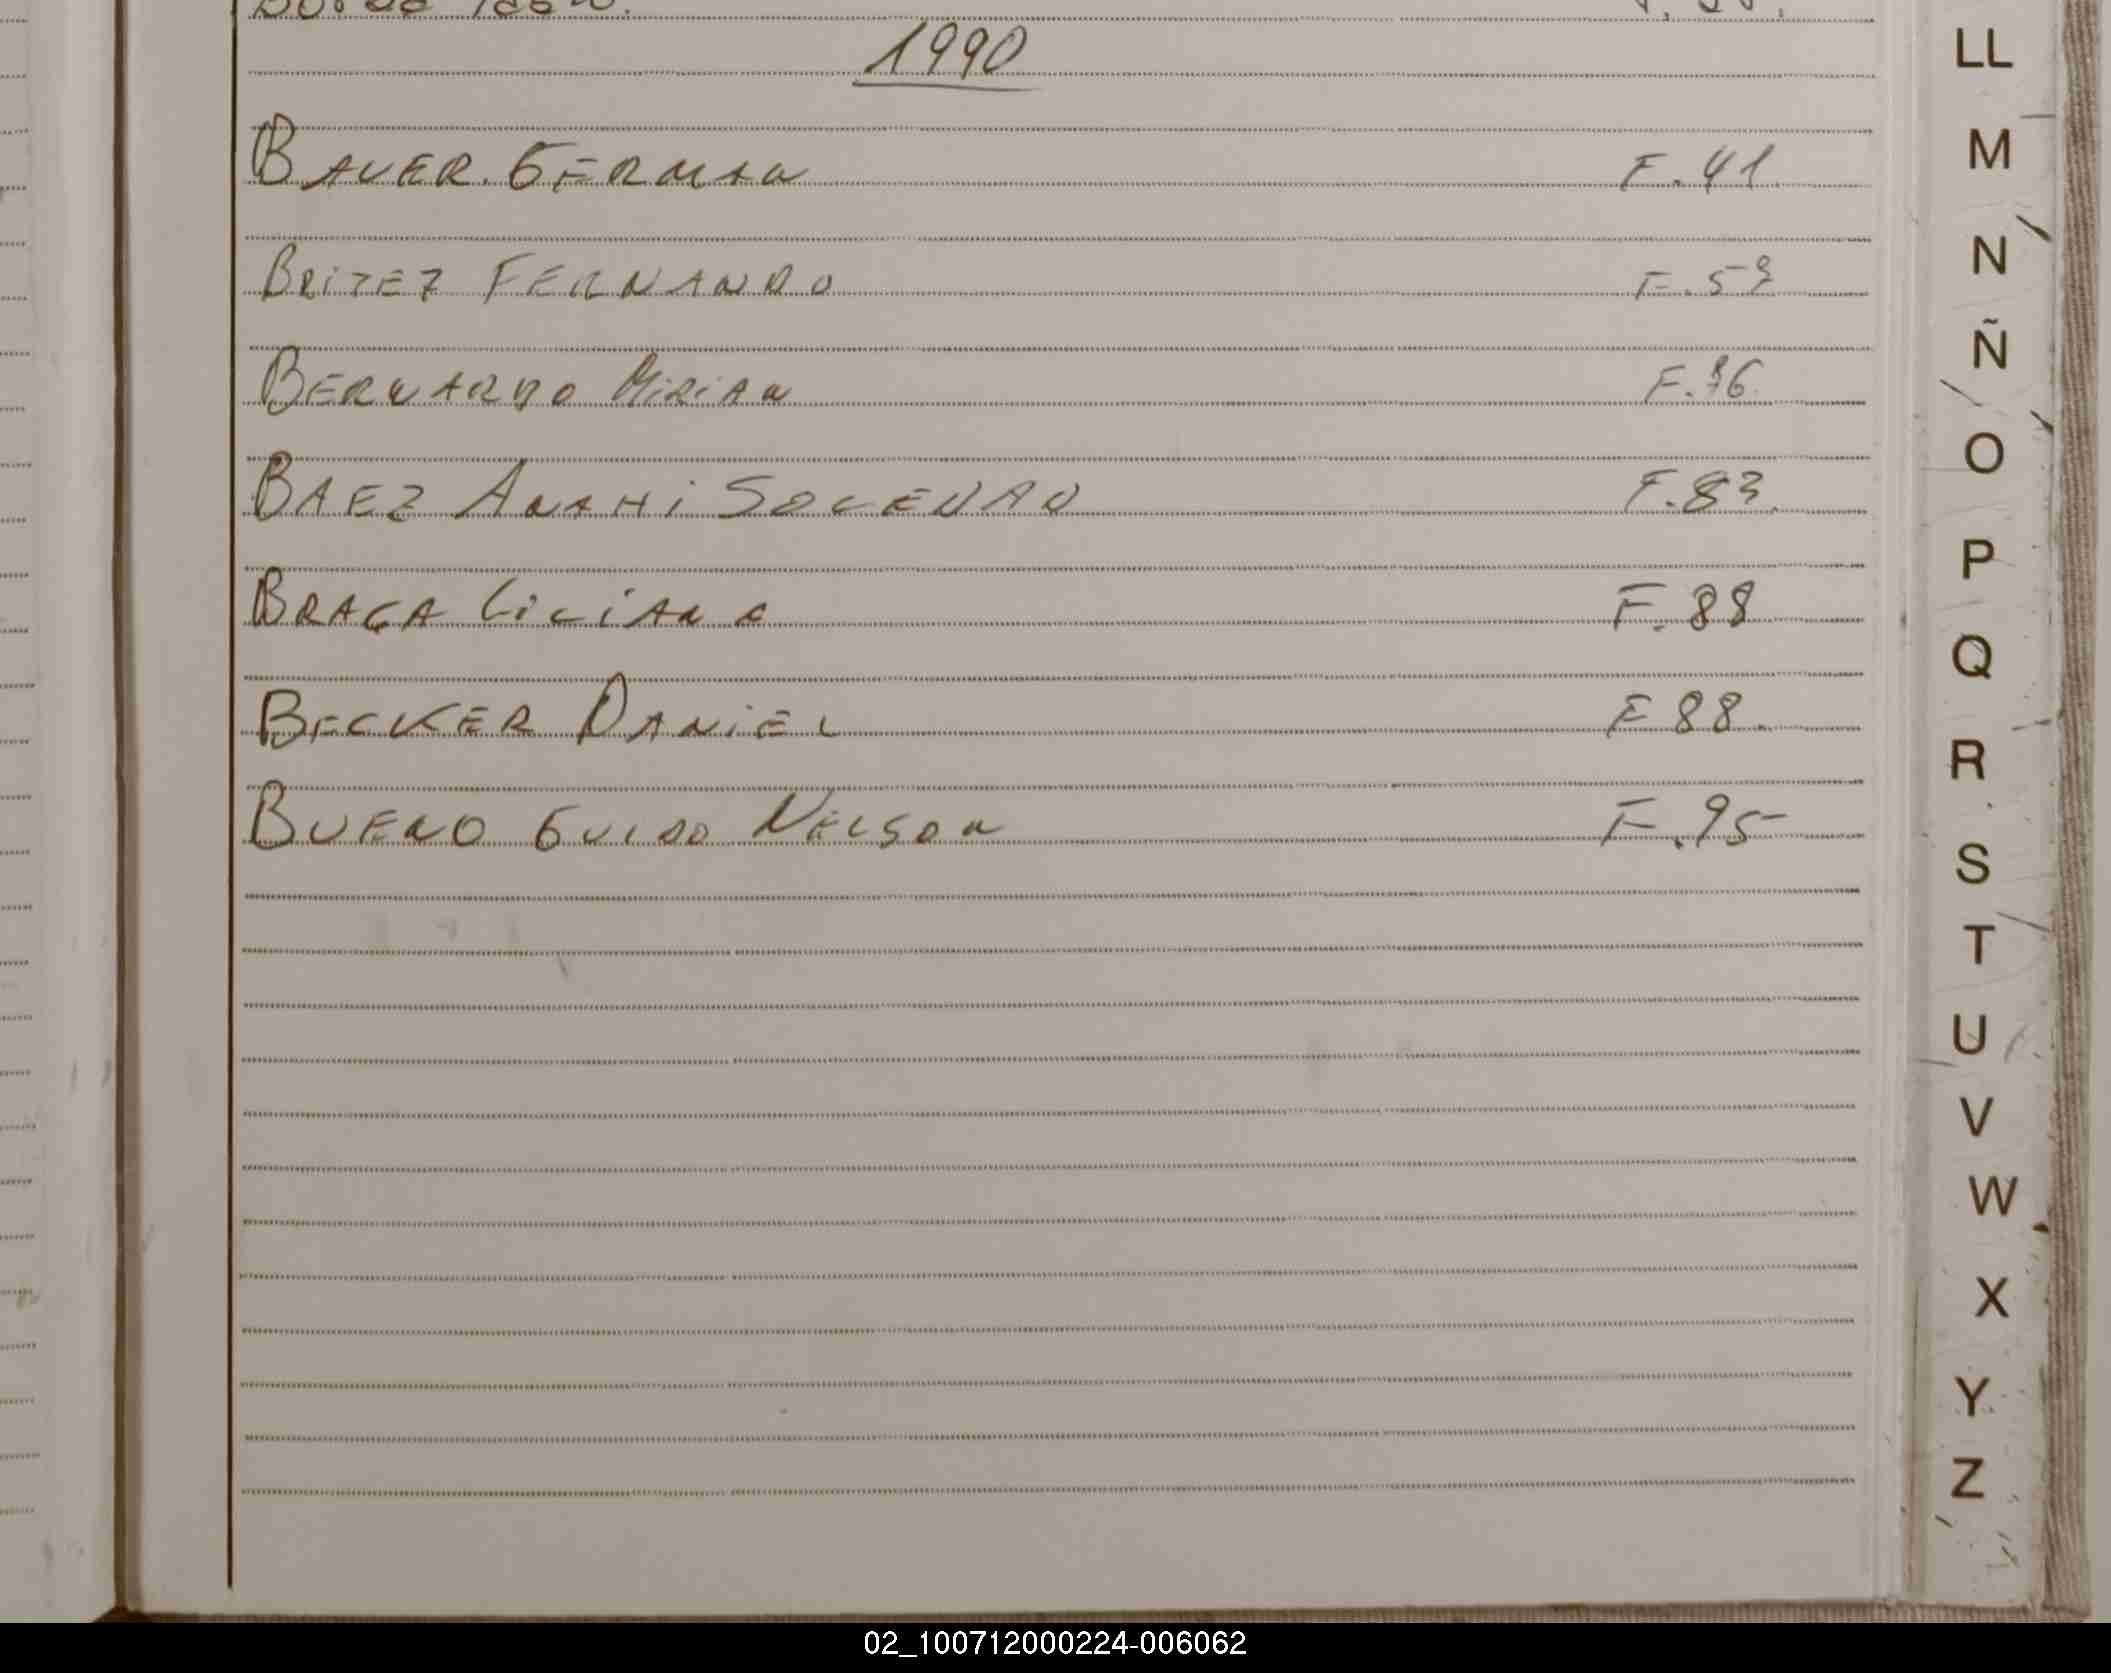 1990
BAUER. GERMAN F.41.
BRiTEZ FERNANDO F.59
BERNARDO MiRiAN F.76.
BAEZ ANAHi SOLEDAD F.83.
BRAGA LiLiANA F.88
BECKER DANiEL F 88.
BUENO GUIDO NELSON F.95
LL
M
N
Ñ
O
P
Q
R
S
T
U
V
W
X
Y
Z
02_100712000224-006062